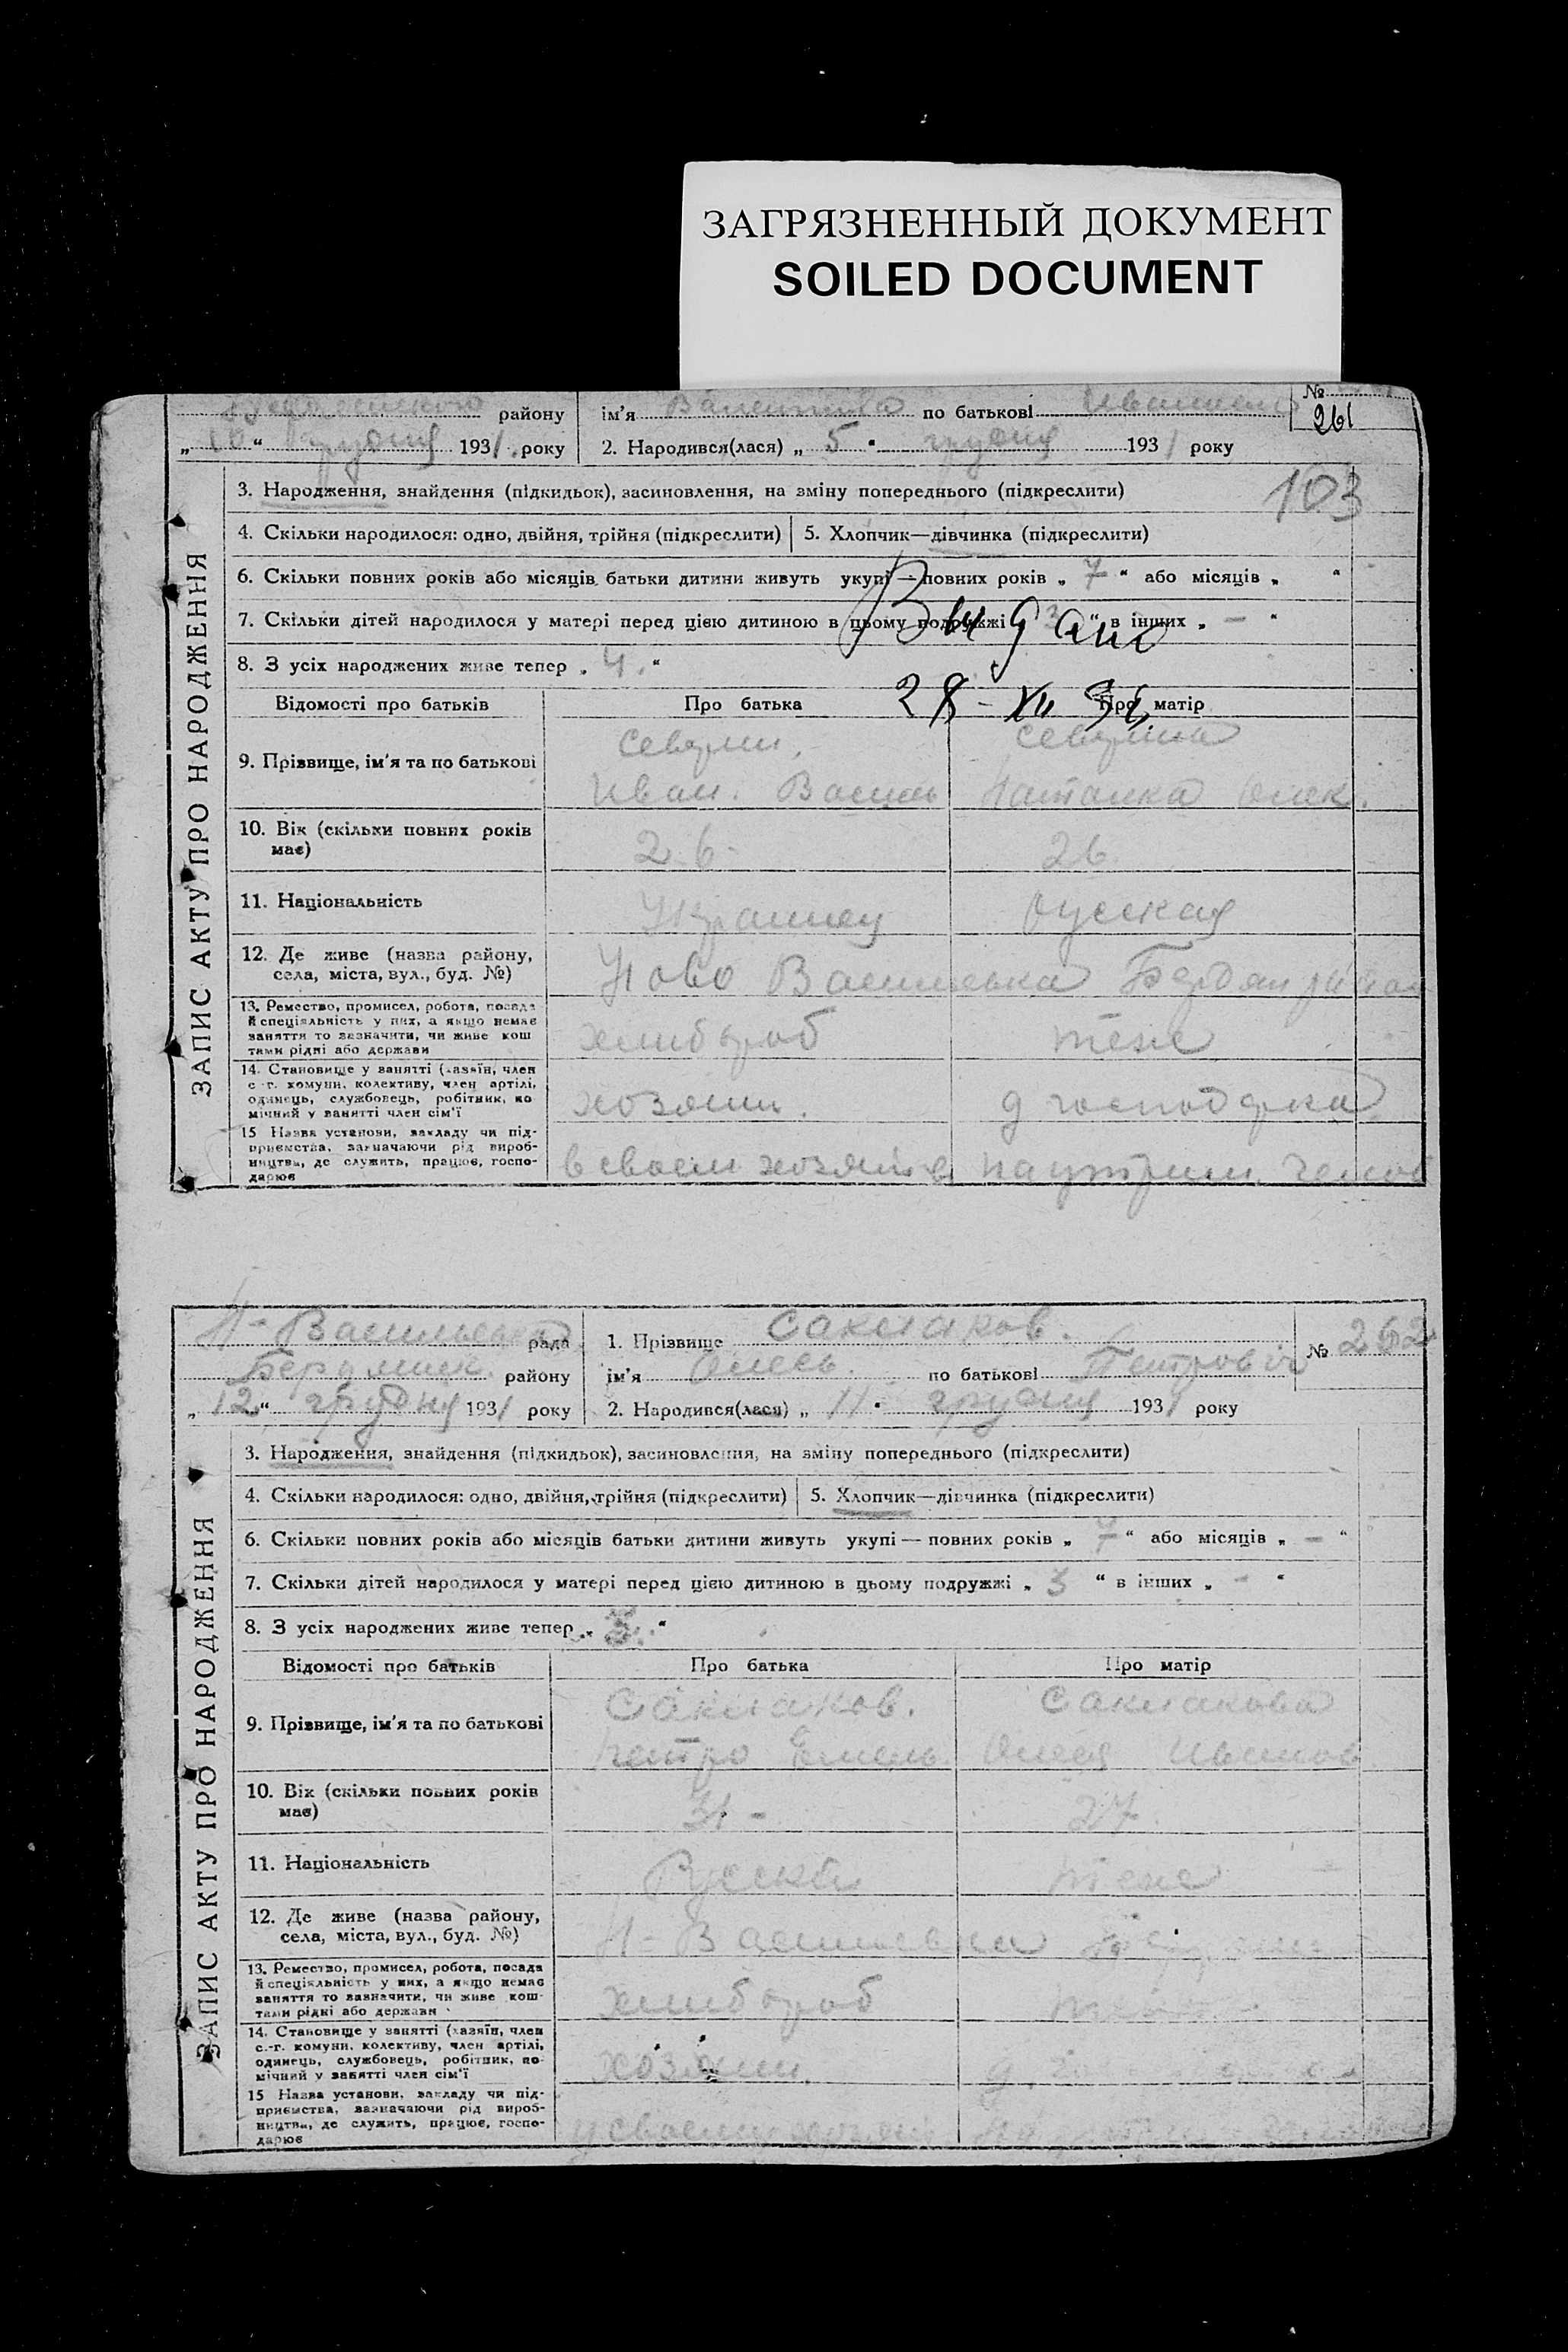 ЗАГРЯЗНЕННЫЙ ДОКУМЕНТ
SOILED DOCUMENT
району
ім'я Валентина по батькові
№ 261
„ 10 “ грудня 1931. року
2. Народився(лася) „ 5 “ грудня 1931 року
103
ЗАПИС АКТУ ПРО НАРОДЖЕННЯ
3. Народження, знайдення (підкидьок), засиновлення, на зміну попереднього (підкреслити)
4. Скільки народилося: одно, двійня, трійня (підкреслити)
5. Хлопчик—дівчинка (підкреслити)
6. Скільки повних років або місяців батьки дитини живуть укупі — повних років „ 7 “ або місяців „ “
7. Скільки дітей народилося у матері перед цією дитиною в цьому подружжі 3 “ в інших „ — “
Видано
8. З усіх народжених живе тепер „ 4. “
28 - XII 31
Відомості про батьків
Про батька
Про матір
9. Прізвище, ім'я та по батькові
Иван. Василь
Наталка Олек.
10. Вік (скільки повних років має)
26
26
11. Національність
Украинец
русская
12. Де живе (назва району, села, міста, вул., буд. №)
Ново Васильевка Бердян район
13. Ремество, промисел, робота, посада
й спеціяльність у них, а якщо немає
заняття то зазначити, чи живе кош
тами рідні або держави
хлибороб
теж
14. Становище у занятті (хазяїн, член
с.-г. комуни, колективу, член артілі,
одинець, службовець, робітник, по
мічний у занятті член сім'ї
хозяин.
д господарка
15 Назва установи, закладу чи під-
приємства, зазначаючи рід вироб-
ництва, де служить, працює, госпо-
дарює
в своем хозяйстве
на утрим. чолов
Н-Васильевка рада
1. Прізвище Саклаков.
№ 262
Бердянск. району
ім'я Олесь. по батькові Петрович
„ 12 “ грудня 1931 року
2. Народився(лася) „ 11 “ грудня 1931 року
ЗАПИС АКТУ ПРО НАРОДЖЕННЯ
3. Народження, знайдення (підкидьок), засиновлення, на зміну попереднього (підкреслити)
4. Скільки народилося: одно, двійня, трійня (підкреслити)
5. Хлопчик—дівчинка (підкреслити)
6. Скільки повних років або місяців батьки дитини живуть укупі — повних років „ 7 “ або місяців „ — “
7. Скільки дітей народилося у матері перед цією дитиною в цьому подружжі „ 3 “ в інших „ - “
8. З усіх народжених живе тепер „ 3. “
Відомості про батьків
Про батька
Про матір
9. Прізвище, ім'я та по батькові
Саклаков.
Саклакова
Петро Емель.
Иванов
10. Вік (скільки повних років має)
31 -
27
11. Національність
Руский
теж
12. Де живе (назва району, села, міста, вул., буд. №)
Н-Васильевка
13. Ремество, промисел, робота, посада
й спеціяльність у них, а якщо немає
заняття то зазначити, чи живе кош-
тами рідні або держави
хлибороб
14. Становище у занятті (хазяїн, член
с.-г. комуни, колективу, член артілі,
одинець, службовець, робітник, по-
мічний у занятті член сім'ї
хозяин.
15 Назва установи, закладу чи під-
приємства, зазначаючи рід вироб-
ництва, де служить, працює, госпо-
дарює
у своем хозяй